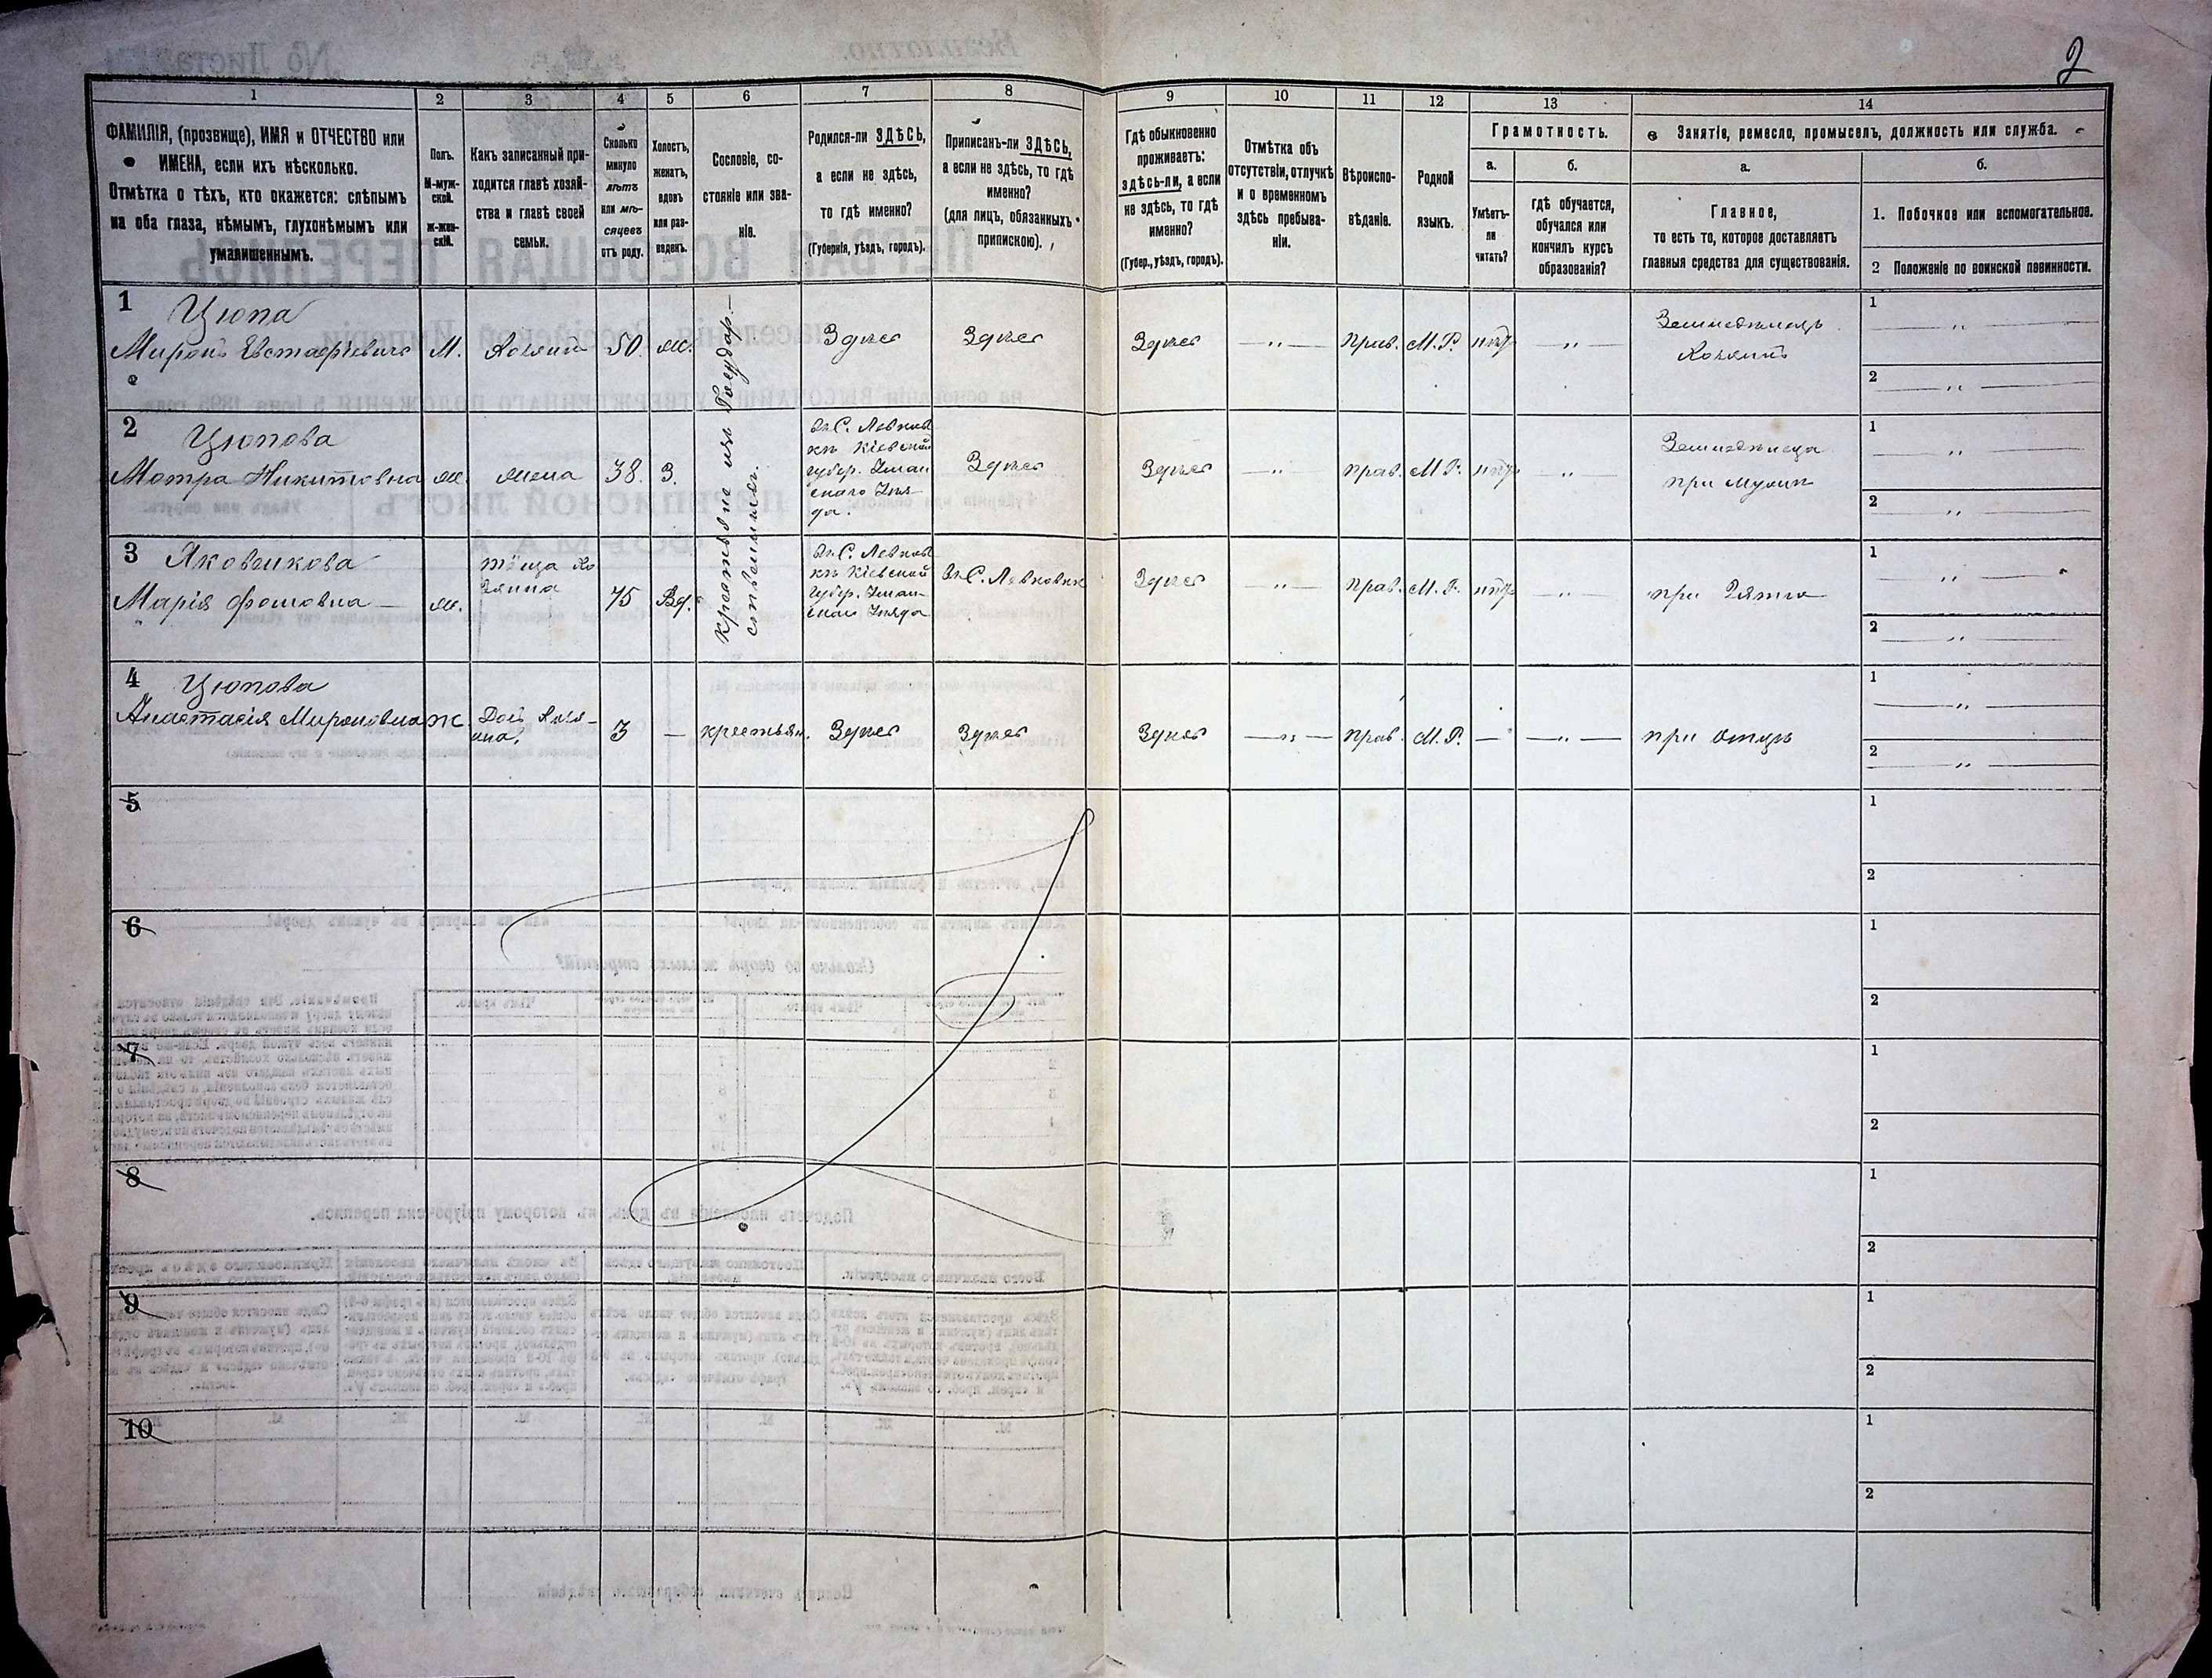 2
1
2
3
4
5
6
7
8
9
10
11
12
13
14
ФАМИЛІЯ, (прозвище), ИМЯ и ОТЧЕСТВО или
ИМЕНА, если ихъ нѣсколько.
Отмѣтка о тѣхъ, кто окажется: слѣпымъ
на оба глаза, нѣмымъ, глухонѣмымъ или
умалишеннымъ.
Полъ.
М-муж-
ской.
Ж-жен-
скій.
Какъ записанный при-
ходится главѣ хозяй-
ства и главѣ своей
семьи.
Сколько
минуло
лѣтъ
или мѣ-
сяцевъ
отъ роду.
Холостъ,
женатъ,
вдовъ
или раз-
веденъ.
Сословіе, со-
стояніе или зва-
ніе.
Родился-ли ЗДѢСЬ,
а если не здѣсь,
то гдѣ именно?
(Губернія, уѣздъ, городъ).
Приписанъ-ли ЗДѢСЬ,
а если не здѣсь, то гдѣ
именно?
(для лицъ, обязанныхъ
припискою).
Гдѣ обыкновенно
проживаетъ:
здѣсь-ли, а если
не здѣсь, то гдѣ
именно?
(Губер., уѣздъ, городъ).
Отмѣтка объ
отсутствіи, отлучкѣ
и о временномъ
здѣсь пребыва-
ніи.
Вѣроиспо-
вѣданіе.
Родной
языкъ.
Грамотность.
а.
Умѣетъ-
ли
читать?
б.
гдѣ обучается,
обучался или
кончилъ курсъ
образованія?
Занятіе, ремесло, промыселъ, должность или служба.
а.
Главное,
то есть то, которое доставляетъ
главныя средства для существованія.
б.
1. Побочное или вспомогательное.
2 Положеніе по воинской повинности.
1 Цюпа
Миронъ Евстафіевичъ М. Хозяинъ 50. ж. Здѣсь Здѣсь Здѣсь — " — Прав. М. Р. нѣтъ — " —
Земледѣлецъ
Хозяинъ
1 — " —
2 — " —
крестьяне изъ Государ-
ственныхъ.
2 Цюпова
Мотра Никитовна ж. жена 38. З.
Въ С. Левков
кѣ Кіевской
губер. Уман
скаго Уѣз-
да.
Здѣсь Здѣсь — " — Прав. М. Р. нѣтъ — " —
Земледѣлица
при мужѣ
1 — " —
2 — " —
3 Яковенкова
Марія Фомовна ж.
тёща Хо
зяина
75 Вд.
Въ С. Левков
кѣ Кіевской
Губер. Уман-
скаго Уѣзда
Въ С. Левковкѣ Здѣсь — " — Прав. М. Р. нѣтъ — " — при зятѣ
1 — " —
2 — " —
4 Цюпова
Анастасія Мироновна Ж.
Дочь Хозя-
ина.
3 — крестьян. Здѣсь Здѣсь Здѣсь — " — Прав. М. Р. — — " — при Отцѣ
1 — " —
2 — " —
5
1
2
6
1
2
7
1
2
8
1
2
9
1
2
10
1
2